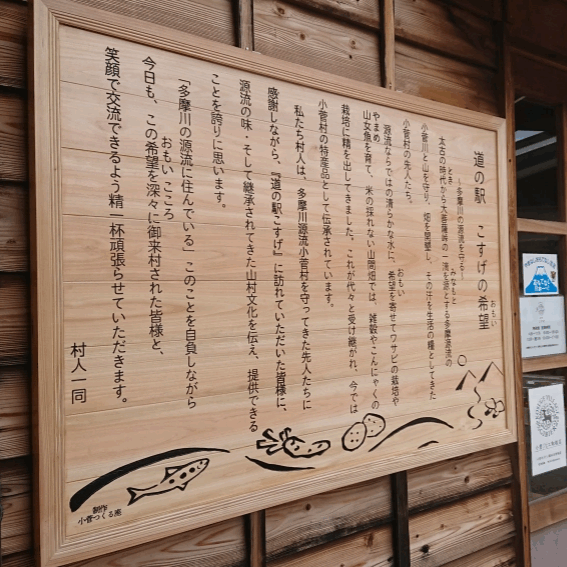 道の駅 こすげの希望
おもい
～多摩川の源流を守る～
太古の時代から大菩薩峠の一滴を源とする多摩源流の
とき
みなもと
小菅川と山を守り、畑を開墾し、その汗を生活の糧としてきた
小菅村の先人たち。
源流ならではの清らかな水に、希望を寄せてワサビの栽培や
おもい
山女魚を育て、米の採れない山間畑では、雑穀やこんにゃくの
やまめ
栽培に精を出してきました。これが代々と受け継がれ、今では
小菅村の特産品として伝承されています。
私たち村人は、多摩川源流小菅村を守ってきた先人たちに
感謝しながら、『道の駅こすげ』に訪れていただいた皆様に、
源流の味・そして継承されてきた山村文化を伝え、提供できる
ことを誇りに思います。
「多摩川の源流に住んでいる」このことを自負しながら
今日も、この希望を深々に御来村された皆様と、
おもい こころ
笑顔で交流できるよう精一杯頑張らせていただきます。
村人一同
制作
小菅つくる座